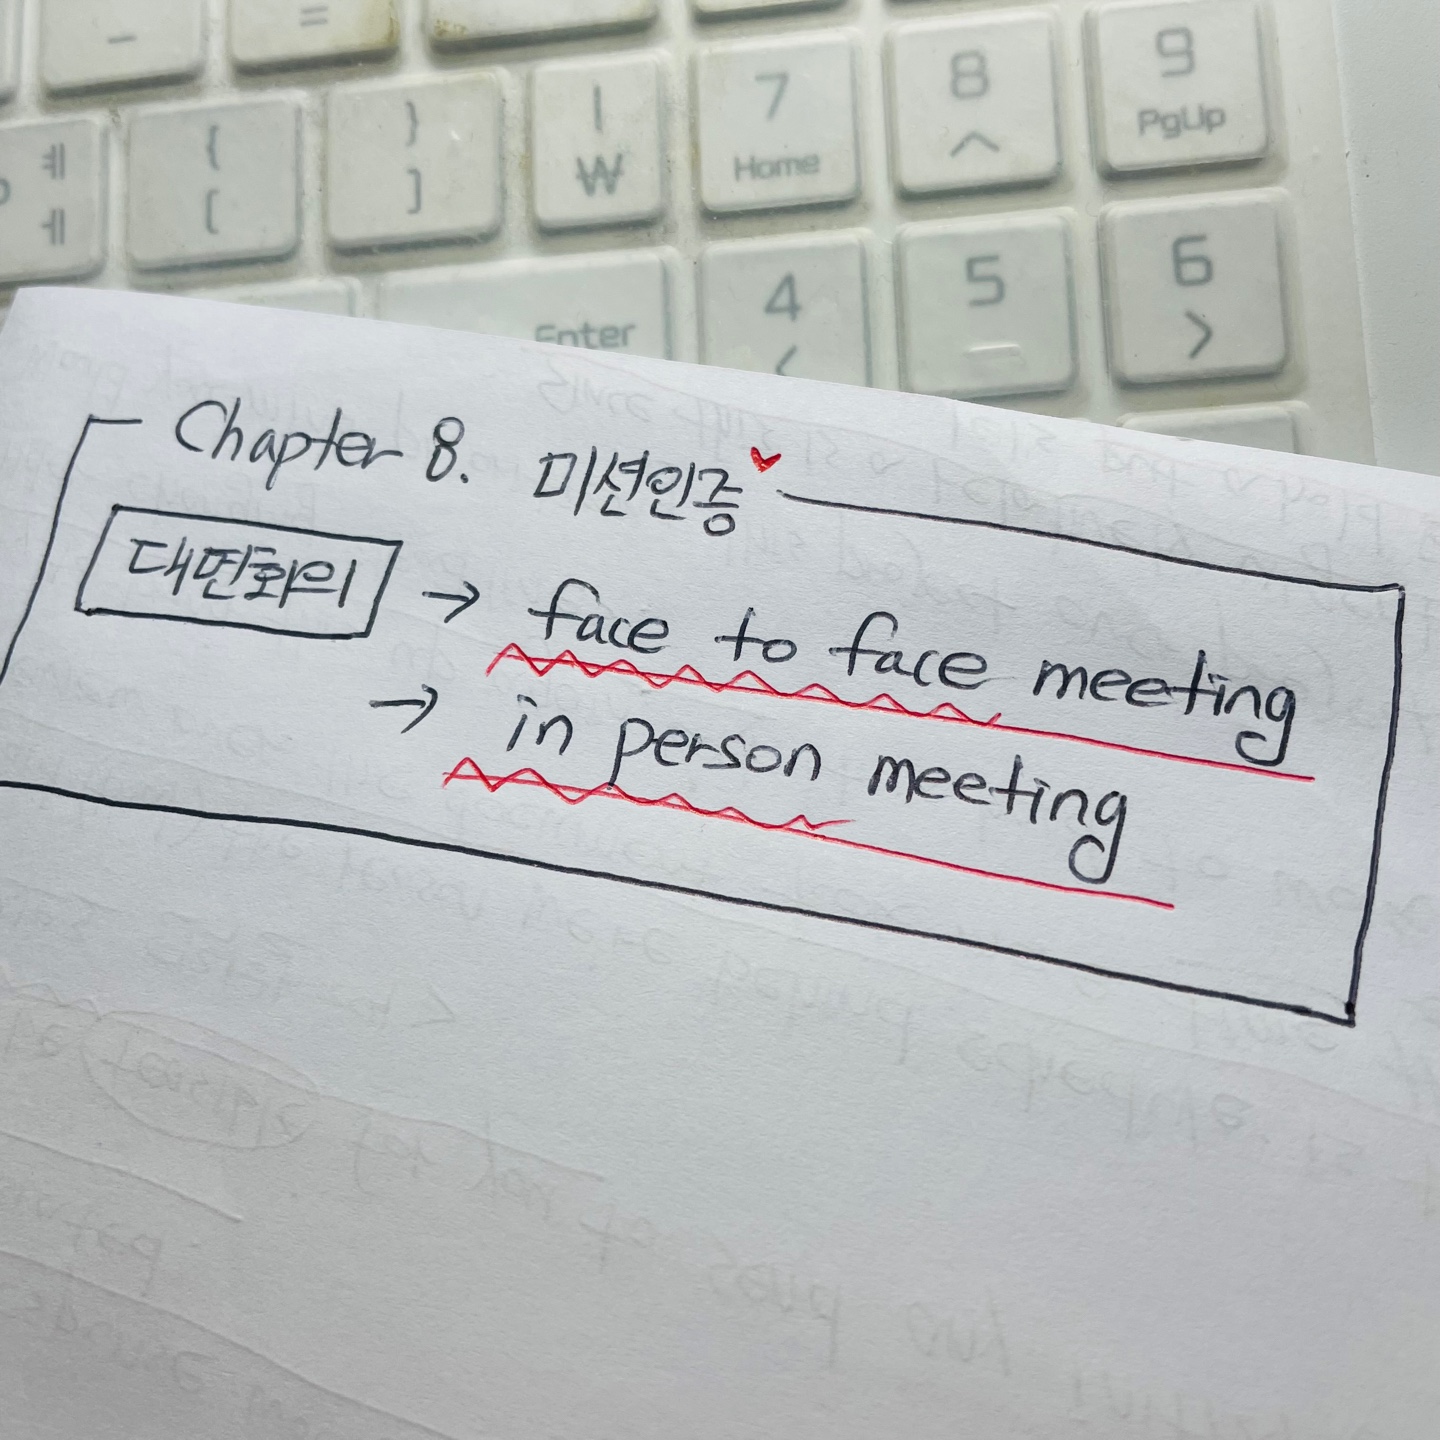 _
=
ㅖ
ㅔ
{
[
}
]
|
₩
7
Home
8
9
PgUp
Enter
4
5
6
Chapter 8. 미션인증
대면회의 → face to face meeting
→ in person meeting